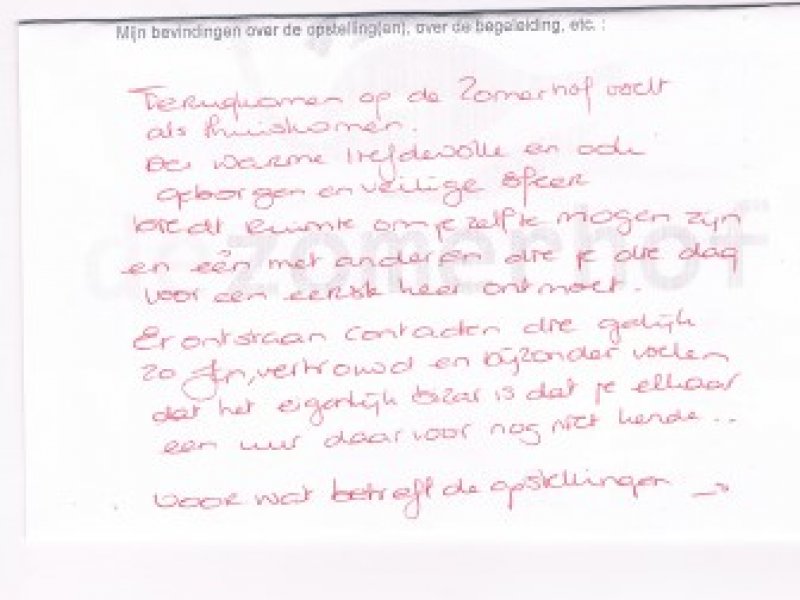 Mijn bevindingen over de opstelling(en), over de begeleiding, etc. :
Terugkomen op de Zomerhof voelt
als thuiskomen.
De warme liefdevolle en ook
geborgen en veilige sfeer
biedt ruimte om jezelf te mogen zijn
en één met anderen die je die dag
voor een eerste keer ontmoet.
Er ontstaan contacten die gelijk
zo fijn, vertrouwd en bijzonder voelen
dat het eigenlijk bizar is dat je elkaar
een uur daarvoor nog niet kende...
Voor wat betreft de opstellingen →
dezomerhof